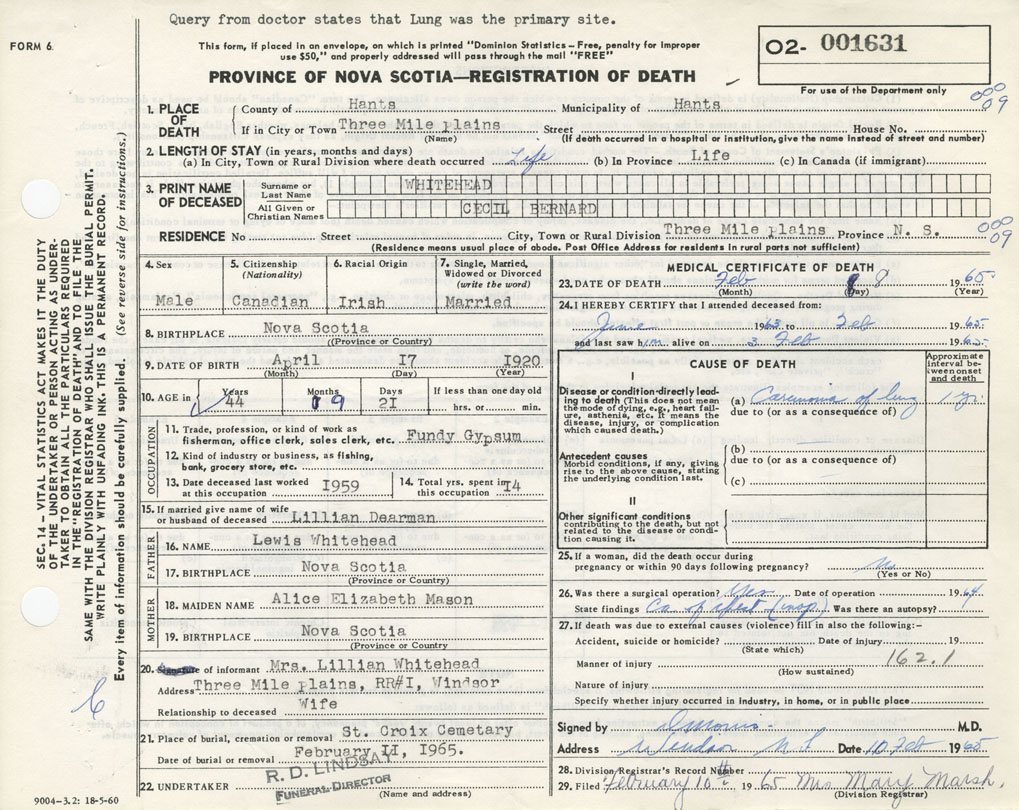 Query from doctor states that Lung was the primary site.
FORM 6.
This form, if placed in an envelope, on which is printed "Dominion Statistics – Free, penalty for improper
use $50," and properly addressed will pass through the mail "FREE"
O2- 001631
For use of the Department only
PROVINCE OF NOVA SCOTIA—REGISTRATION OF DEATH
1. PLACE OF DEATH
County of Hants Municipality of Hants
000 09
If in City or Town Three Mile plains Street House No.
(Name) (If death occurred in a hospital or institution, give the name instead of street and number)
2. LENGTH OF STAY (in years, months and days)
(a) In City, Town or Rural Division where death occurred Life (b) In Province Life (c) In Canada (if immigrant)
3. PRINT NAME OF DECEASED
Surname or Last Name WHITEHEAD
All Given or Christian Names CECIL BERNARD
RESIDENCE No Street City, Town or Rural Division Three Mile plains Province N. S.
000 09
(Residence means usual place of abode. Post Office Address for residents in rural parts not sufficient)
4. Sex Male
5. Citizenship (Nationality) Canadian
6. Racial Origin Irish
7. Single, Married, Widowed or Divorced (write the word) Married
8. BIRTHPLACE Nova Scotia
(Province or Country)
9. DATE OF BIRTH April I7 I920
(Month) (Day) (Year)
10. AGE in Years 44 Months 9 Days 2I If less than one day old hrs. or min.
OCCUPATION
11. Trade, profession, or kind of work as
fisherman, office clerk, sales clerk, etc. Fundy Gypsum
12. Kind of industry or business, as fishing,
bank, grocery store, etc.
13. Date deceased last worked at this occupation I959
14. Total yrs. spent in I4
15. If married give name of wife
or husband of deceased Lillian Dearman
FATHER
16. NAME Lewis Whitehead
17. BIRTHPLACE Nova Scotia
(Province or Country)
MOTHER
18. MAIDEN NAME Alice Elizabeth Mason
19. BIRTHPLACE Nova Scotia
(Province or Country
20. Signature of informant Mrs. Lillian Whitehead
Address Three Mile plains, RR#I, Windsor
Relationship to deceased Wife
21. Place of burial, cremation or removal St. Croix Cemetary
Date of burial or removal February II, I965.
R. D. LINDSAY
FUNERAL DIRECTOR
22. UNDERTAKER
(Name and address)
9004–3.2: 18-5-60
MEDICAL CERTIFICATE OF DEATH
23. DATE OF DEATH Feb 8 1965
(Month) (Day) (Year)
24. I HEREBY CERTIFY that I attended deceased from:
June 1963 to Feb 1965
and last saw him alive on 3 Feb 1965
CAUSE OF DEATH
Approximate interval between onset and death
I
Disease or condition directly leading to death (This does not mean the mode of dying, e.g., heart failure, asthenia, etc. It means the disease, injury, or complication which caused death.)
(a) Carcinoma of lung 1 yr.
due to (or as a consequence of)
Antecedent causes
Morbid conditions, if any, giving rise to the above cause, stating the underlying condition last.
(b)
due to (or as a consequence of)
(c)
II
Other significant conditions
contributing to the death, but not related to the disease or condition causing it.
25. If a woman, did the death occur during
pregnancy or within 90 days following pregnancy? no
(Yes or No)
26. Was there a surgical operation? Yes Date of operation 1964
State findings Ca of Was there an autopsy?
27. If death was due to external causes (violence) fill in also the following:–
Accident, suicide or homicide? Date of injury 19
(State which)
Manner of injury 162.1
(How sustained)
Nature of injury
Specify whether injury occurred in industry, in home, or in public place
Signed by M.D.
Address Windsor N S Date 10 Feb 1965
28. Division Registrar's Record Number
29. Filed February 10th 1965 Mrs Mary Marsh.
(Division Registrar)
SEC. 14 – VITAL STATISTICS ACT MAKES IT THE DUTY
OF THE UNDERTAKER OR PERSON ACTING AS UNDER-
TAKER TO OBTAIN ALL THE PARTICULARS REQUIRED
IN THE "REGISTRATION OF DEATH" AND TO FILE THE
SAME WITH THE DIVISION REGISTRAR WHO SHALL ISSUE THE BURIAL PERMIT.
WRITE PLAINLY WITH UNFADING INK. THIS IS A PERMANENT RECORD.
Every item of information should be carefully supplied. (See reverse side for instructions.)